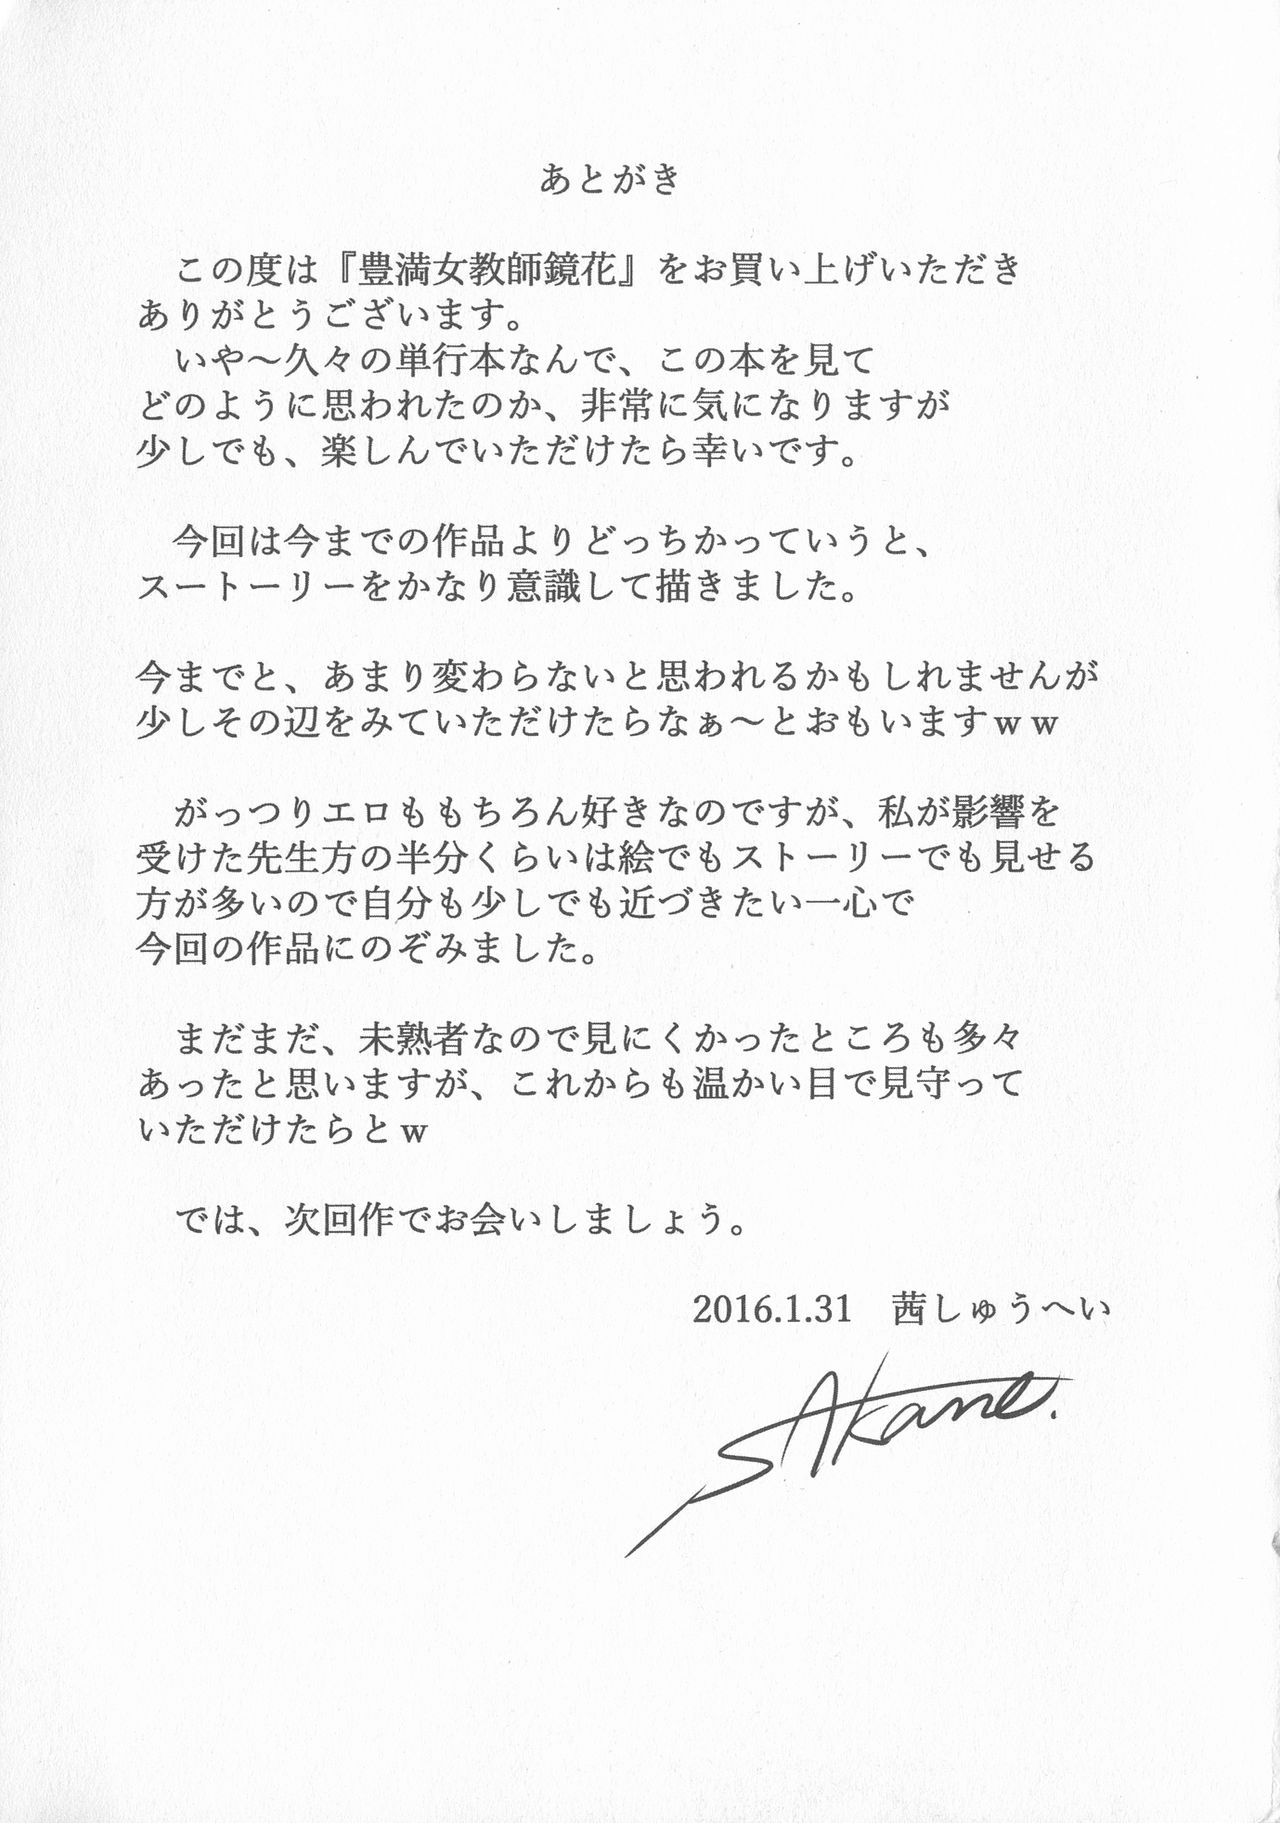 あとがき
この度は『豊満女教師鏡花』をお買い上げいただき
ありがとうございます。
いや～久々の単行本なんで、この本を見て
どのように思われたのか、非常に気になりますが
少しでも、楽しんでいただけたら幸いです。
今回は今までの作品よりどっちかっていうと、
スートーリーをかなり意識して描きました。
今までと、あまり変わらないと思われるかもしれませんが
少しその辺をみていただけたらなぁ～とおもいますｗｗ
がっつりエロももちろん好きなのですが、私が影響を
受けた先生方の半分くらいは絵でもストーリーでも見せる
方が多いので自分も少しでも近づきたい一心で
今回の作品にのぞみました。
まだまだ、未熟者なので見にくかったところも多々
あったと思いますが、これからも温かい目で見守って
いただけたらとｗ
では、次回作でお会いしましょう。
2016.1.31　茜しゅうへい
SAkane.